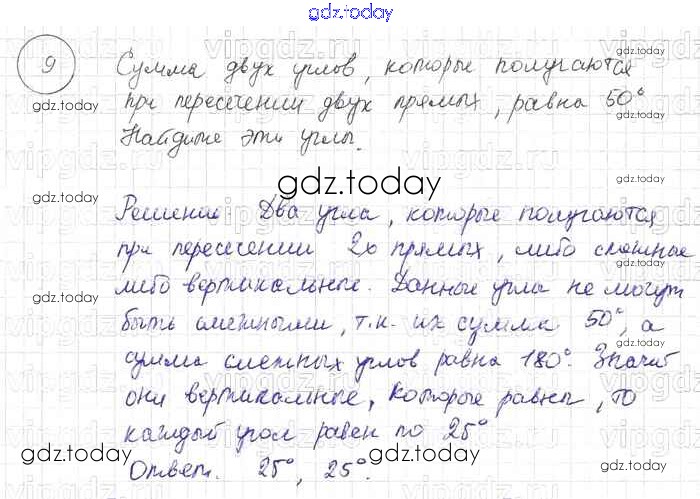 gdz.today
9 Сумма двух углов, которые получаются
при пересечении двух прямых, равна 50°
Найдите эти углы.
gdz.today
Решение. Два угла, которые получаются
при пересечении 2х прямых, либо смежные
либо вертикальные. Данные углы не могут
быть смежными, т.к. их сумма 50°, а
сумма смежных углов равна 180°. Значит
они вертикальные, которые равны, то
каждый угол равен по 25°
Ответ. 25°, 25°.
gdz.today
gdz.today